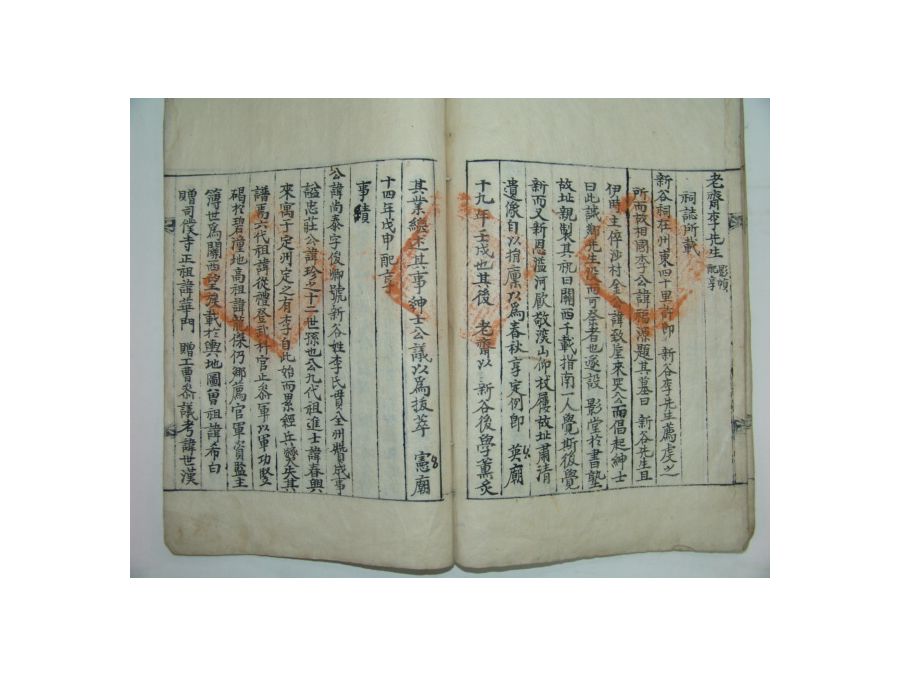 老齋李先生 影幀配享
祠誌所載
新谷祠在州東四十里許即 新谷李先生薦虔之
所而故相國李公諱福源題其墓曰 新谷先生且
伊時主倅沙村金公諱致屋來哭公而倡起紳士
曰此誠鄉先生沒而可祭者也遂設 影堂於書塾
故址親製其祝曰關西千載指南一人覺斯後覺
新而又新恩滥河厥敬溪山仰杖屨故址肅清
遺像自以捐廩以爲春秋享定例即 英廟
十九年壬戌也其後 老齋以 新谷後學薰炙
其業總述其事紳士公議以爲拔萃 憲廟
十四年戊申配享
事績
公諱尚泰字俊卿號新谷姓李氏貫全州贊成事
謚忠莊公諱珍之十二世孫也公九代祖進士諱春興
來寓于定州定之有李自此始而累經兵燹失其
譜焉六代祖諱從禮登武科官止參軍以軍功竪
碣於碧潼地高祖諱傑仍鄉薦官軍資監主
簿世爲關西望族載於輿地圖曾祖諱希白
贈司僕寺正祖諱華門 贈工曹參議考諱世漢